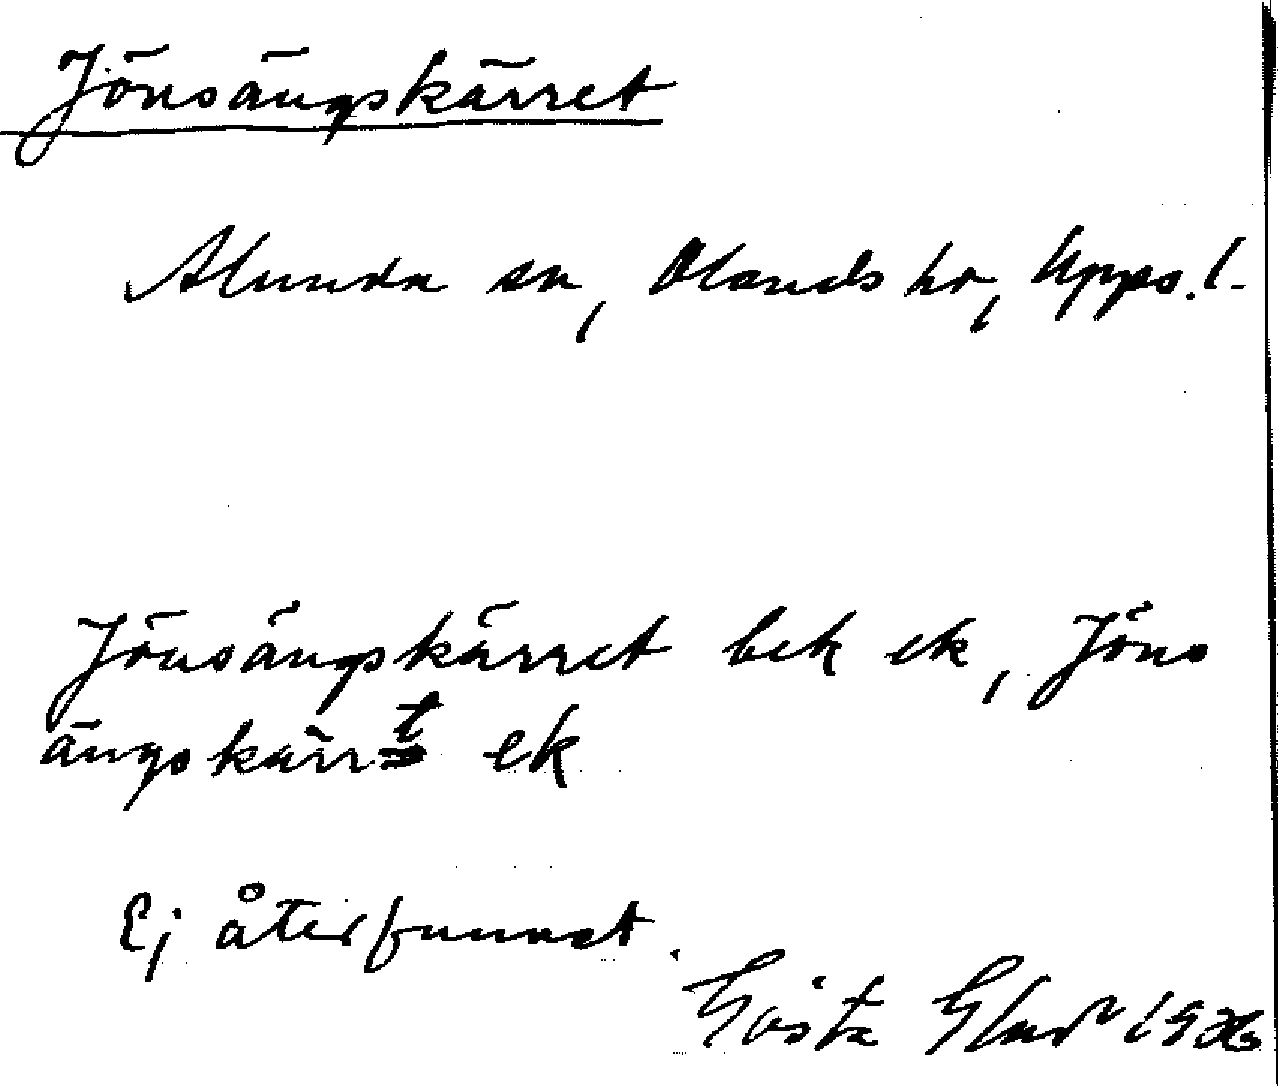 Jönsängskärret
Alunda sn, Olands hd, Upps. l.
Jönsängskärret bek ek, Jöns
ängskärret ek
Ej återfunnet.
Gösta